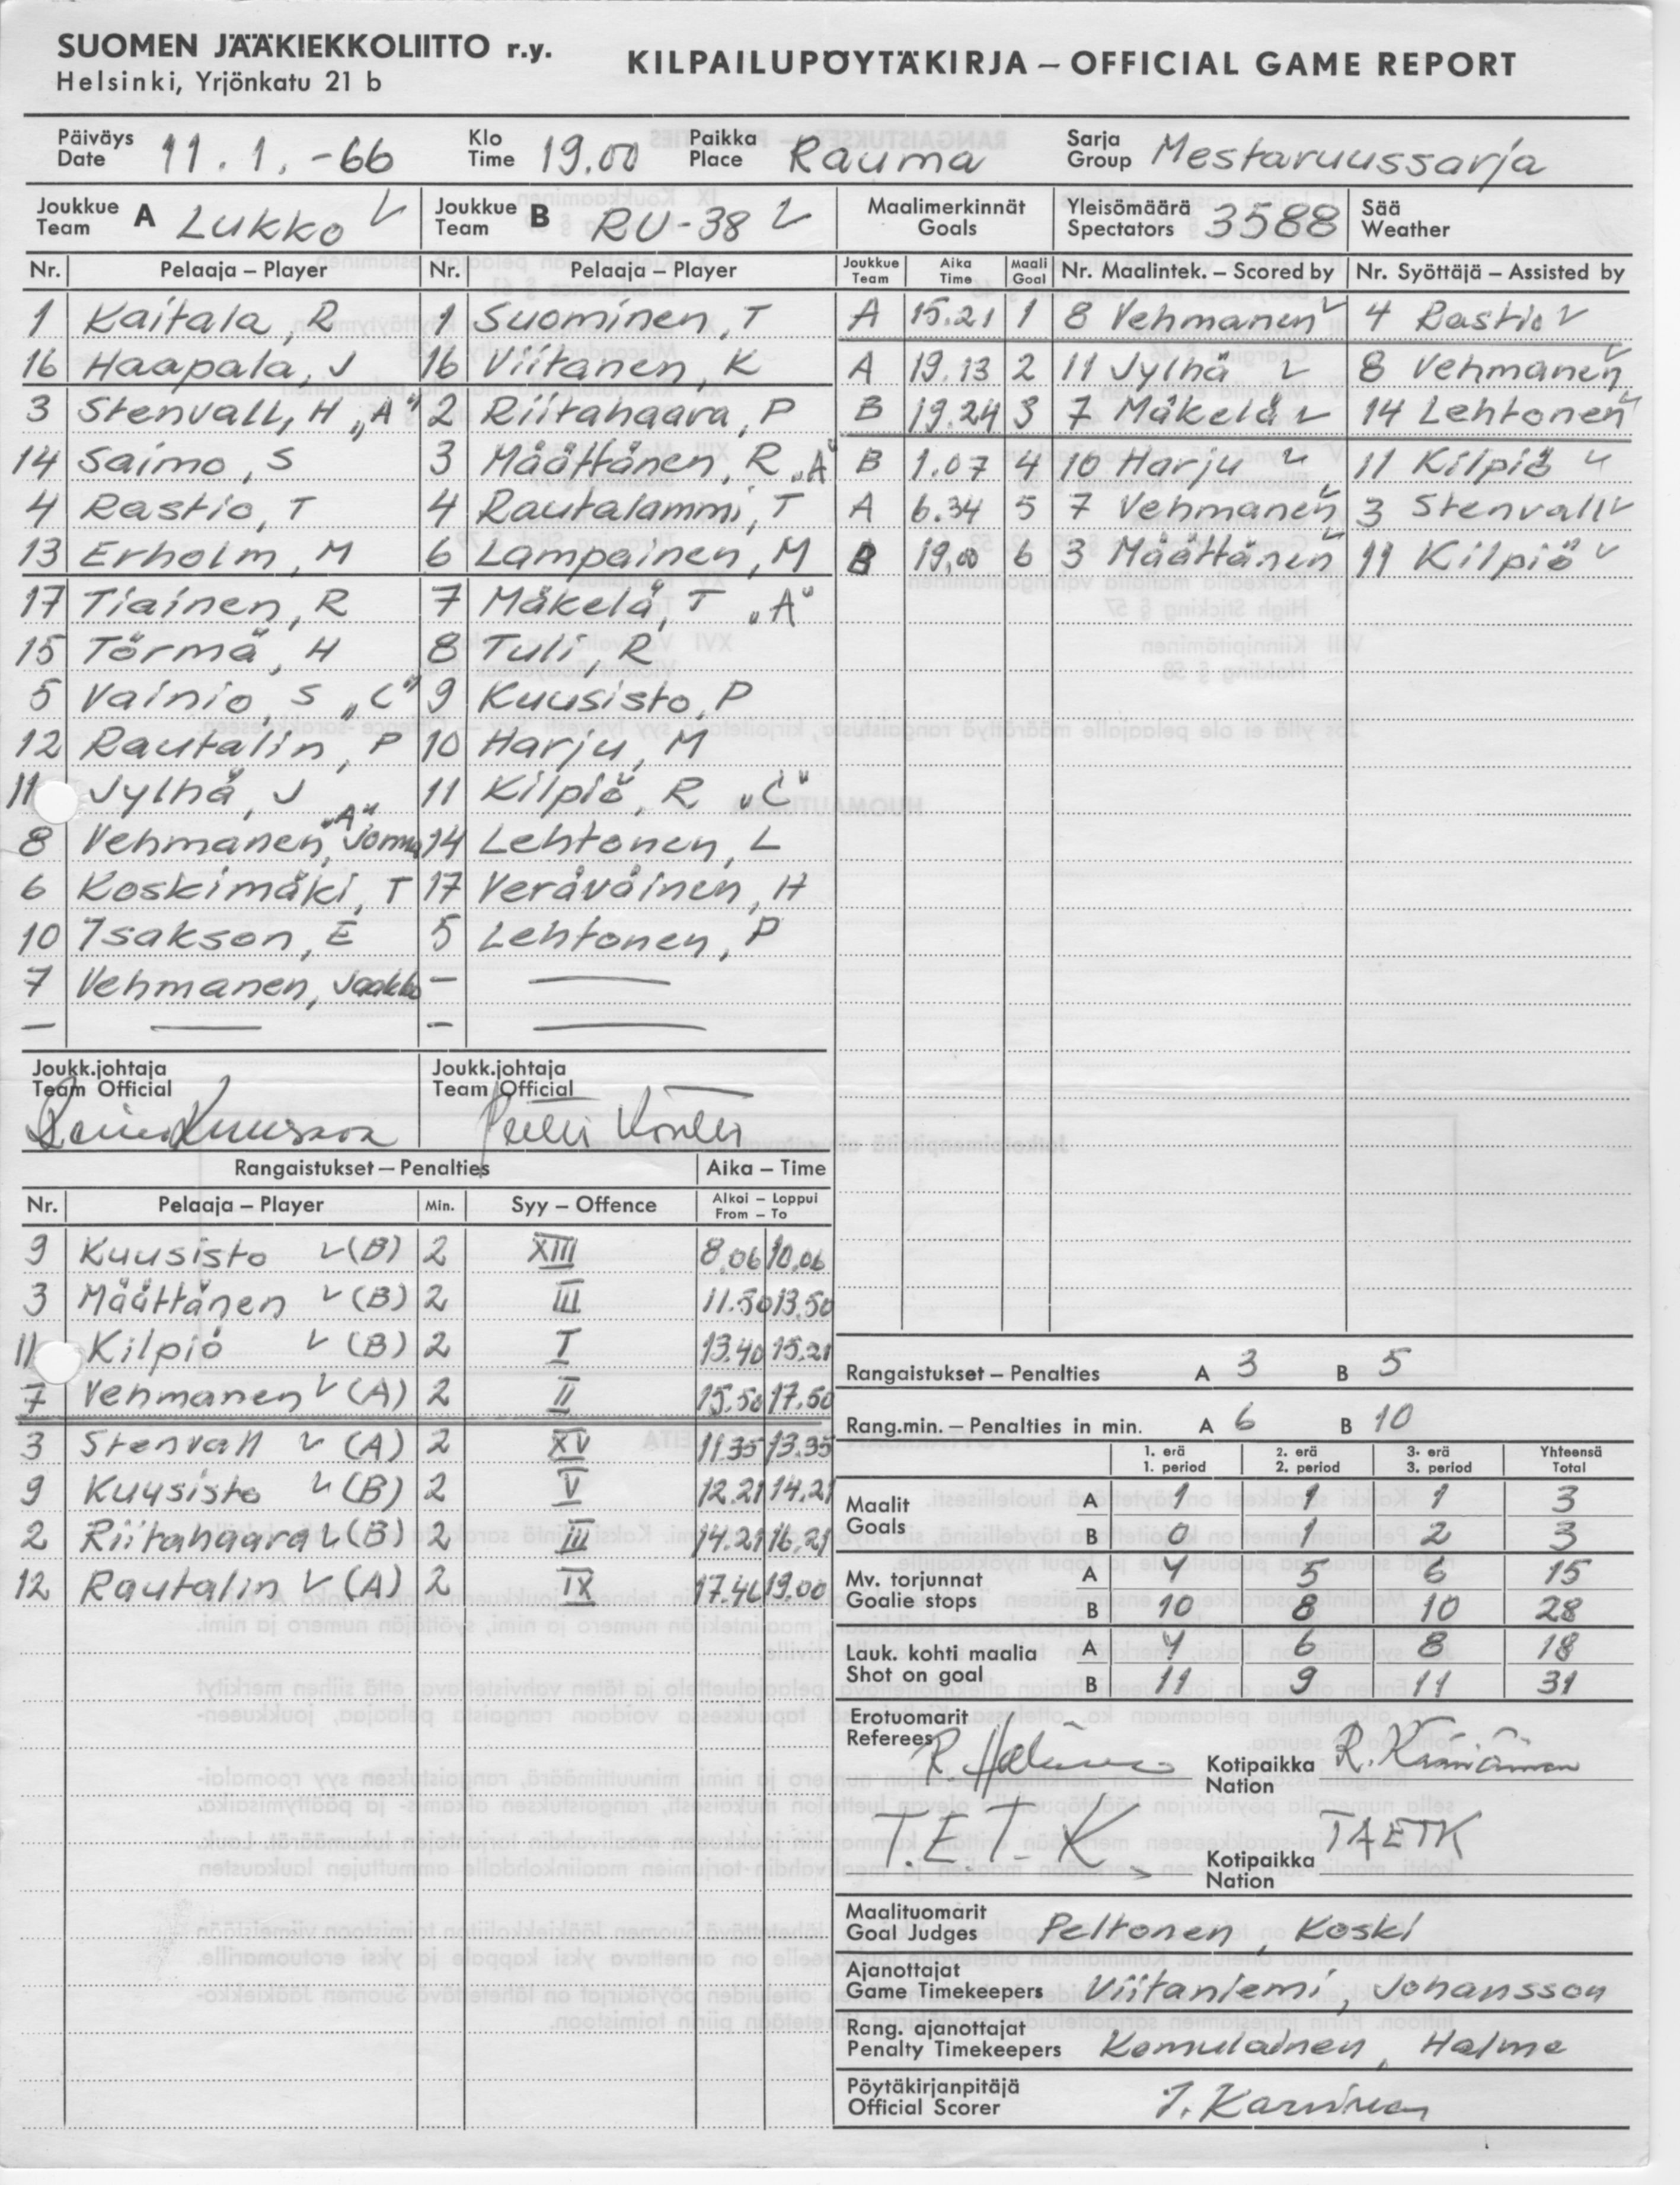 SUOMEN JÄÄKIEKKOLIITTO r.y.
Helsinki, Yrjönkatu 21 b
KILPAILUPÖYTÄKIRJA – OFFICIAL GAME REPORT
Päiväys Date 11.1.-66 Klo Time 19.00 Paikka Place Rauma Sarja Group Mestaruussarja
Joukkue Team A Lukko Joukkue Team B RU-38 Maalimerkinnät Goals Yleisömäärä Spectators 3588 Sää Weather
Nr. Pelaaja – Player Nr. Pelaaja – Player Joukkue Team Aika Time Maali Goal Nr. Maalintek. – Scored by Nr. Syöttäjä – Assisted by
1 Kaitala, R 1 Suominen, T A 15.21 1 8 Vehmanen 4 Rastio
16 Haapala, J 16 Viitanen, K A 19.13 2 11 Jylhä 8 Vehmanen
3 Stenvall, H "A" 2 Riitahaara, P B 19.24 3 7 Mäkelä 14 Lehtonen
14 Saimo, S 3 Määttänen, R "A" B 1.07 4 10 Harju 11 Kilpiö
4 Rastio, T 4 Rautalammi, T A 6.34 5 7 Vehmanen 3 Stenvall
13 Erholm, M 6 Lampainen, M B 19.00 6 3 Määttänen 11 Kilpiö
17 Tiainen, R 7 Mäkelä, T "A"
15 Törmä, H 8 Tuli, R
5 Vainio, S "C" 9 Kuusisto, P
12 Rautalin, P 10 Harju, M
11 Jylhä, J 11 Kilpiö, R "C"
8 Vehmanen, Jorma "A" 14 Lehtonen, L
6 Koskimäki, T 17 Veräväinen, H
10 Isakson, E 5 Lehtonen, P
7 Vehmanen, Jaakko –
– –
Joukk.johtaja Team Official Joukk.johtaja Team Official
Rangaistukset – Penalties Aika – Time
Nr. Pelaaja – Player Min. Syy – Offence Alkoi – Loppui From – To
9 Kuusisto (B) 2 XIII 8.06 10.06
3 Määttänen (B) 2 III 11.50 13.50
11 Kilpiö (B) 2 I 13.40 15.21
7 Vehmanen (A) 2 II 15.50 17.50
3 Stenvall (A) 2 XV 11.35 13.35
9 Kuusisto (B) 2 V 12.21 14.21
2 Riitahaara (B) 2 III 14.21 16.21
12 Rautalin (A) 2 IX 17.46 19.00
Rangaistukset – Penalties A 3 B 5
Rang.min. – Penalties in min. A 6 B 10
1. erä 1. period 2. erä 2. period 3. erä 3. period Yhteensä Total
Maalit Goals A 1 1 1 3
B 0 1 2 3
Mv. torjunnat Goalie stops A 4 5 6 15
B 10 8 10 28
Lauk. kohti maalia Shot on goal A 4 6 8 18
B 11 9 11 31
Erotuomarit Referees Kotipaikka Nation
T.E.T-K. Kotipaikka Nation TAETK
Maalituomarit Goal Judges Peltonen, Koski
Ajanottajat Game Timekeepers Viitaniemi, Johansson
Rang. ajanottajat Penalty Timekeepers Komulainen, Halme
Pöytäkirjanpitäjä Official Scorer